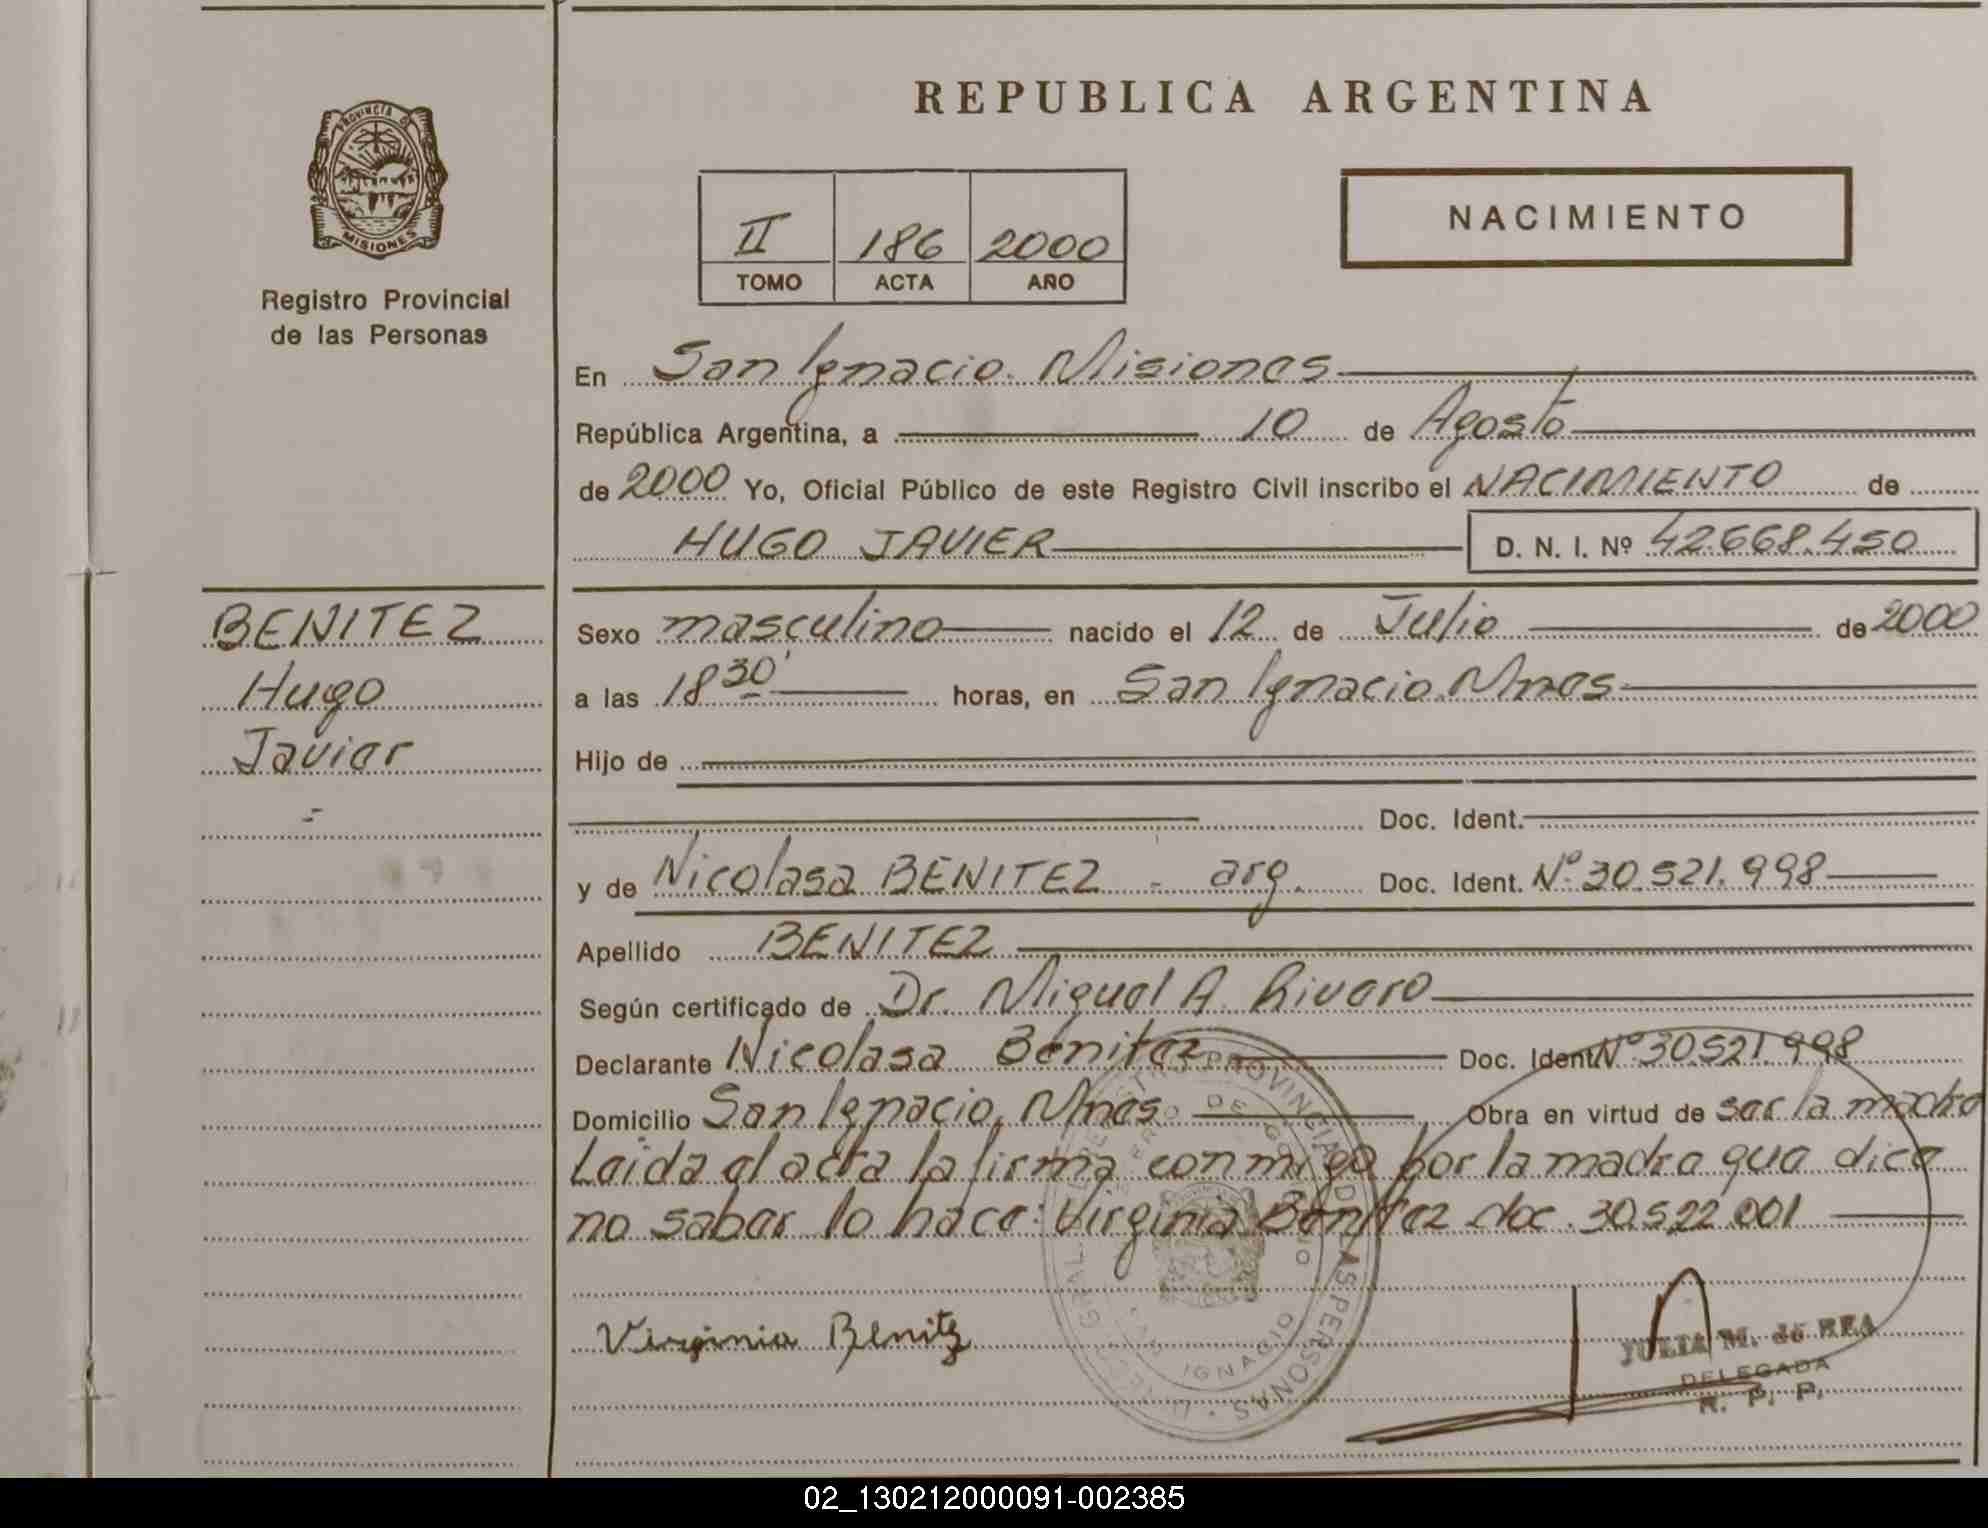 REPUBLICA ARGENTINA
PROVINCIA DE
MISIONES
Registro Provincial
de las Personas
II 186 2000
TOMO ACTA AÑO
NACIMIENTO
En San Ignacio. Misiones
República Argentina, a 10 de Agosto
de 2000 Yo, Oficial Público de este Registro Civil inscribo el NACIMIENTO de
HUGO JAVIER D. N. I. Nº 42.668.450
BENITEZ
Hugo
Javier
Sexo masculino nacido el 12 de Julio de 2000
a las 18 30' horas, en San Ignacio. Mnes
Hijo de
Doc. Ident.
y de Nicolasa BENITEZ - arg. Doc. Ident. Nº 30.521.998
Apellido BENITEZ
Según certificado de Dr. Miguel A. Rivero
Declarante Nicolasa Benitez Doc. Ident. Nº 30.521.998
Domicilio San Ignacio, Mnes Obra en virtud de ser la madre
Leida el acta la firma conmigo por la madre que dice
no saber lo hace: Virginia Benitez doc. 30.522.001
Virginia Benitz
REGISTRO PROVINCIAL DE LAS PERSONAS
SAN IGNACIO
YULIA M. de REA
DELEGADA
R. P. P.
02_130212000091-002385